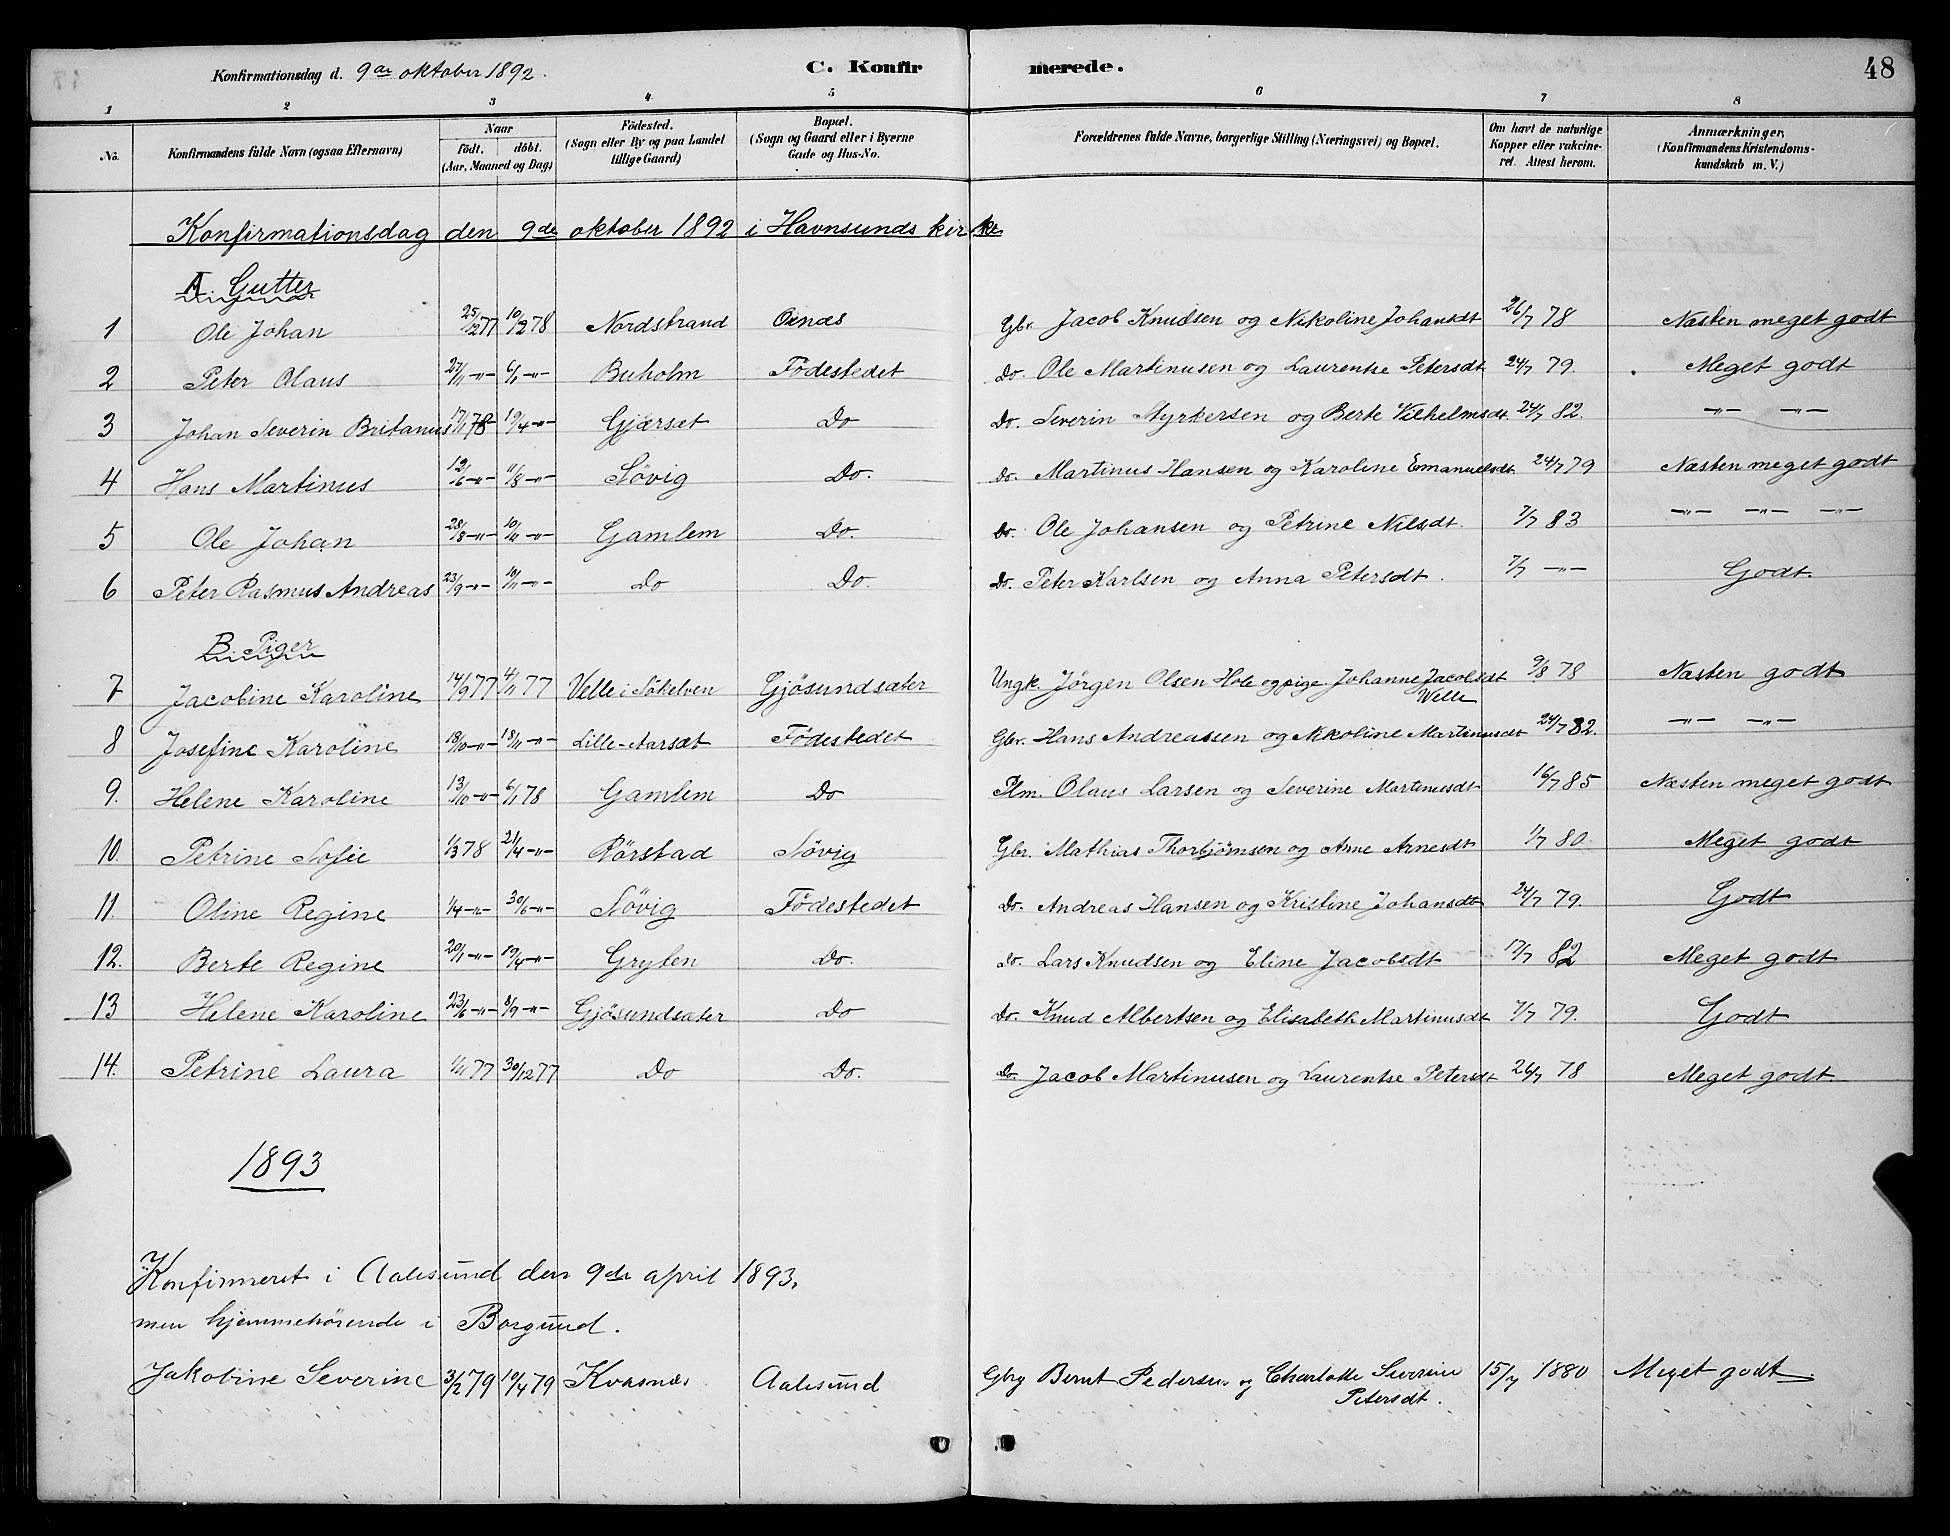 Konfirmationsdag d. 9de oktober 1892. C. Konfirmerede. 48
1 2 3 4 5 6 7 8
No. Konfirmandens fulde Navn (ogsaa Efternavn) Naar födt. döbt. (Aar, Maaned og Dag) Födested. (Sogn eller By og paa Landet tillige Gaard) Bopæl. (Sogn og Gaard eller i Byerne Gade og Hus-No. Forældrenes fulde Navne, borgerlige Stilling (Næringsvei) og Bopæl. Om havt de naturlige Kopper eller vakcineret. Attest herom. Anmærkninger, (Konfirmandens Kristendomskundskab m. V.)
Konfirmationsdag den 9de oktober 1892 i Havnsunds kirke
A. Gutter
1 Ole Johan 25/12 77 10/2 78 Nordstrand Oxnæs Gbr. Jacob Knudsen og Nikoline Johansdt 26/7 78 Næsten meget godt
2 Peter Olaus 27/11 -"- 6/1 -"- Buholm Födestedet Do. Ole Martinusen og Laurentse Petersdt 24/7 79. Meget godt
3 Johan Severin Britanus 17/1 78 19/4 -"- Gjærset Do Do. Severin Myrkersen og Berte Vilhelmsdt. 24/7 82. -"- -"-
4 Hans Martinus 12/6 -"- 11/8 -"- Sövig Do. Do. Martinus Hansen og Karoline Emanuelsdt. 24/7 79 Næsten meget godt
5 Ole Johan 28/8 -"- 10/11 -"- Gamlem Do. Do. Ole Johansen og Petrine Nilsdt. 7/7 83 -"- -"- -"-
6 Peter Rasmus Andreas 23/9 -"- 10/11 -"- Do Do Do. Peter Karlsen og Anna Petersdt. 7/7 -"- Godt.
B. Piger
7 Jacobine Karoline 14/9 77 4/11 77 Velle i Sökelven Gjösundsæter Ungk. Jörgen Olsen Hole og pige Johanne Jacobsdt Welle 9/8 78 Næsten godt
8 Josefine Karoline 18/10 -"- 18/11 -"- Lille-Aarsæt Födestedet Gbr. Hans Andreassen og Nikoline Martinusdt 24/7 82. -"- -"-
9. Helene Karoline 13/10 -"- 6/1 78 Gamlem Do Plm. Olaus Larsen og Severine Martinusdt 16/7 85 Næsten meget godt
10. Petrine Sofie 1/3 78 21/4 -"- Rörstad Sövig Gbr. Mathias Thorbjörnsen og Anne Arnesdt 1/7 80. Meget godt
11. Oline Regine 1/4 -"- 30/6 -"- Sövig Födestedet Do. Andreas Hansen og Kristine Johansdt 24/7 79. Godt
12. Berte Regine 20/1 -"- 19/4 -"- Gryten Do. Do. Lars Knudsen og Eline Jacobsdt 17/7 82 Meget godt
13 Helene Karoline 23/6 -"- 8/9 -"- Gjösundsæter Do Do. Knud Albertsen og Elisabeth Martinusdt 7/7 79. Godt
14. Petrine Laura 1/11 77 30/12 77 Do Do. Do. Jacob Martinusen og Laurentse Petersdt 26/7 78 Meget godt.
1893
Konfirmeret i Aalesund den 9de april 1893,
men hjemmehörende i Borgund.
Jakobine Severine 3/2 79 10/4 79 Kvasnæs Aalesund Gbr Bernt Pedersen og Charlotte Severine 15/7 1880 Meget godt.
Petersdt.